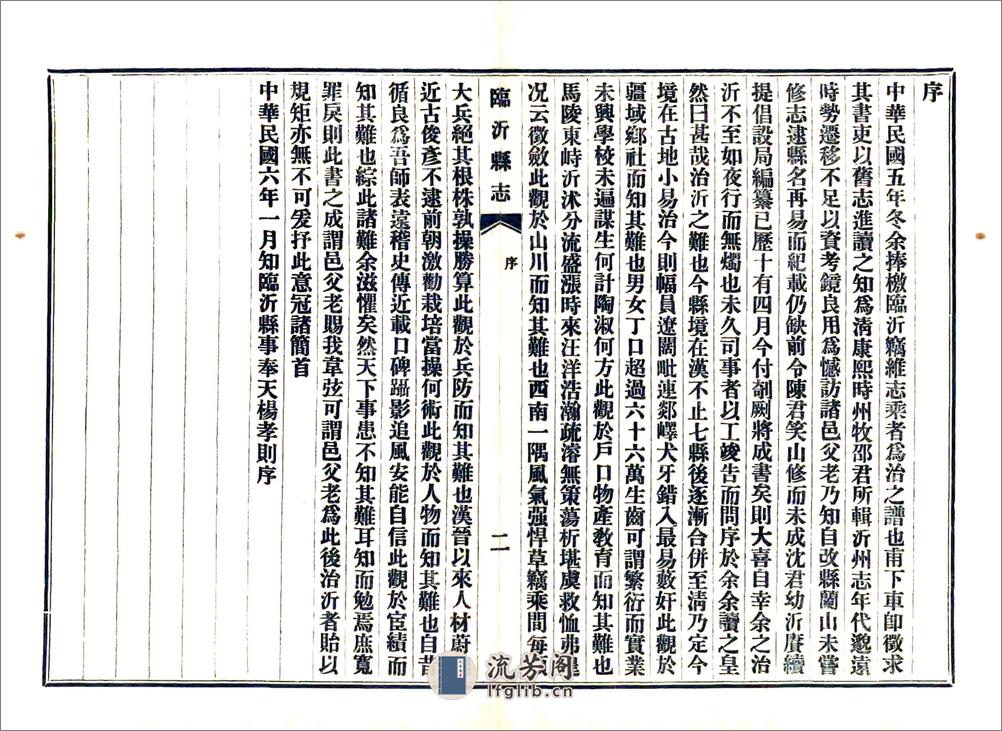 序
中華民國五年冬余捧檄臨沂竊維志乘者爲治之譜也甫下車卽徵求
其書吏以舊志進讀之知爲淸康熙時州牧邵君所輯沂州志年代邈遠
時勢遷移不足以資考鏡良用爲憾訪諸邑父老乃知自改縣蘭山未嘗
修志逮縣名再易而紀載仍缺前令陳君笑山修而未成沈君幼沂賡續
提倡設局編纂已歷十有四月今付剞劂將成書矣則大喜自幸余之治
沂不至如夜行而無燭也未久司事者以工竣吿而問序於余余讀之皇
然曰甚哉治沂之難也今縣境在漢不止七縣後逐漸合併至淸乃定今
境在古地小易治今則幅員遼闊毗連郯嶧犬牙錯入最易藪奸此觀於
疆域鄉社而知其難也男女丁口超過六十六萬生齒可謂繁衍而實業
未興學校未遍謀生何計陶淑何方此觀於戶口物產敎育而知其難也
馬陵東峙沂沭分流盛漲時來汪洋浩瀚疏濬無策蕩析堪虞救恤弗遑
况云徵斂此觀於山川而知其難也西南一隅風氣强悍草竊乘間每
臨沂縣志
序
二
大兵絕其根株孰操勝算此觀於兵防而知其難也漢晉以來人材蔚
近古俊彥不逮前朝激勸栽培當操何術此觀於人物而知其難也自昔
循良爲吾師表遠稽史傳近載口碑躡影追風安能自信此觀於宦績而
知其難也綜此諸難余滋懼矣然天下事患不知其難耳知而勉焉庶寬
罪戾則此書之成謂邑父老賜我韋弦可謂邑父老爲此後治沂者貽以
規矩亦無不可爰抒此意冠諸簡首
中華民國六年一月知臨沂縣事奉天楊孝則序
流芳阁
lfglib.cn